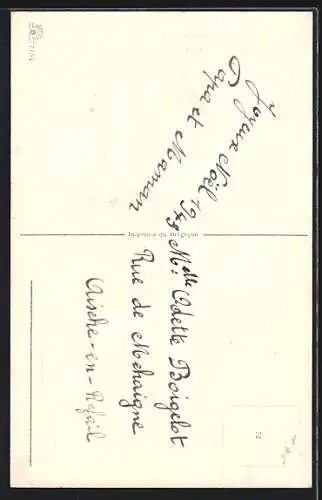 Joyeux Noël 1943
Papa et Maman
Imprimé en Belgique
Melle Odette Boigelot
Rue de Mehaigne
Aische-en-Refail